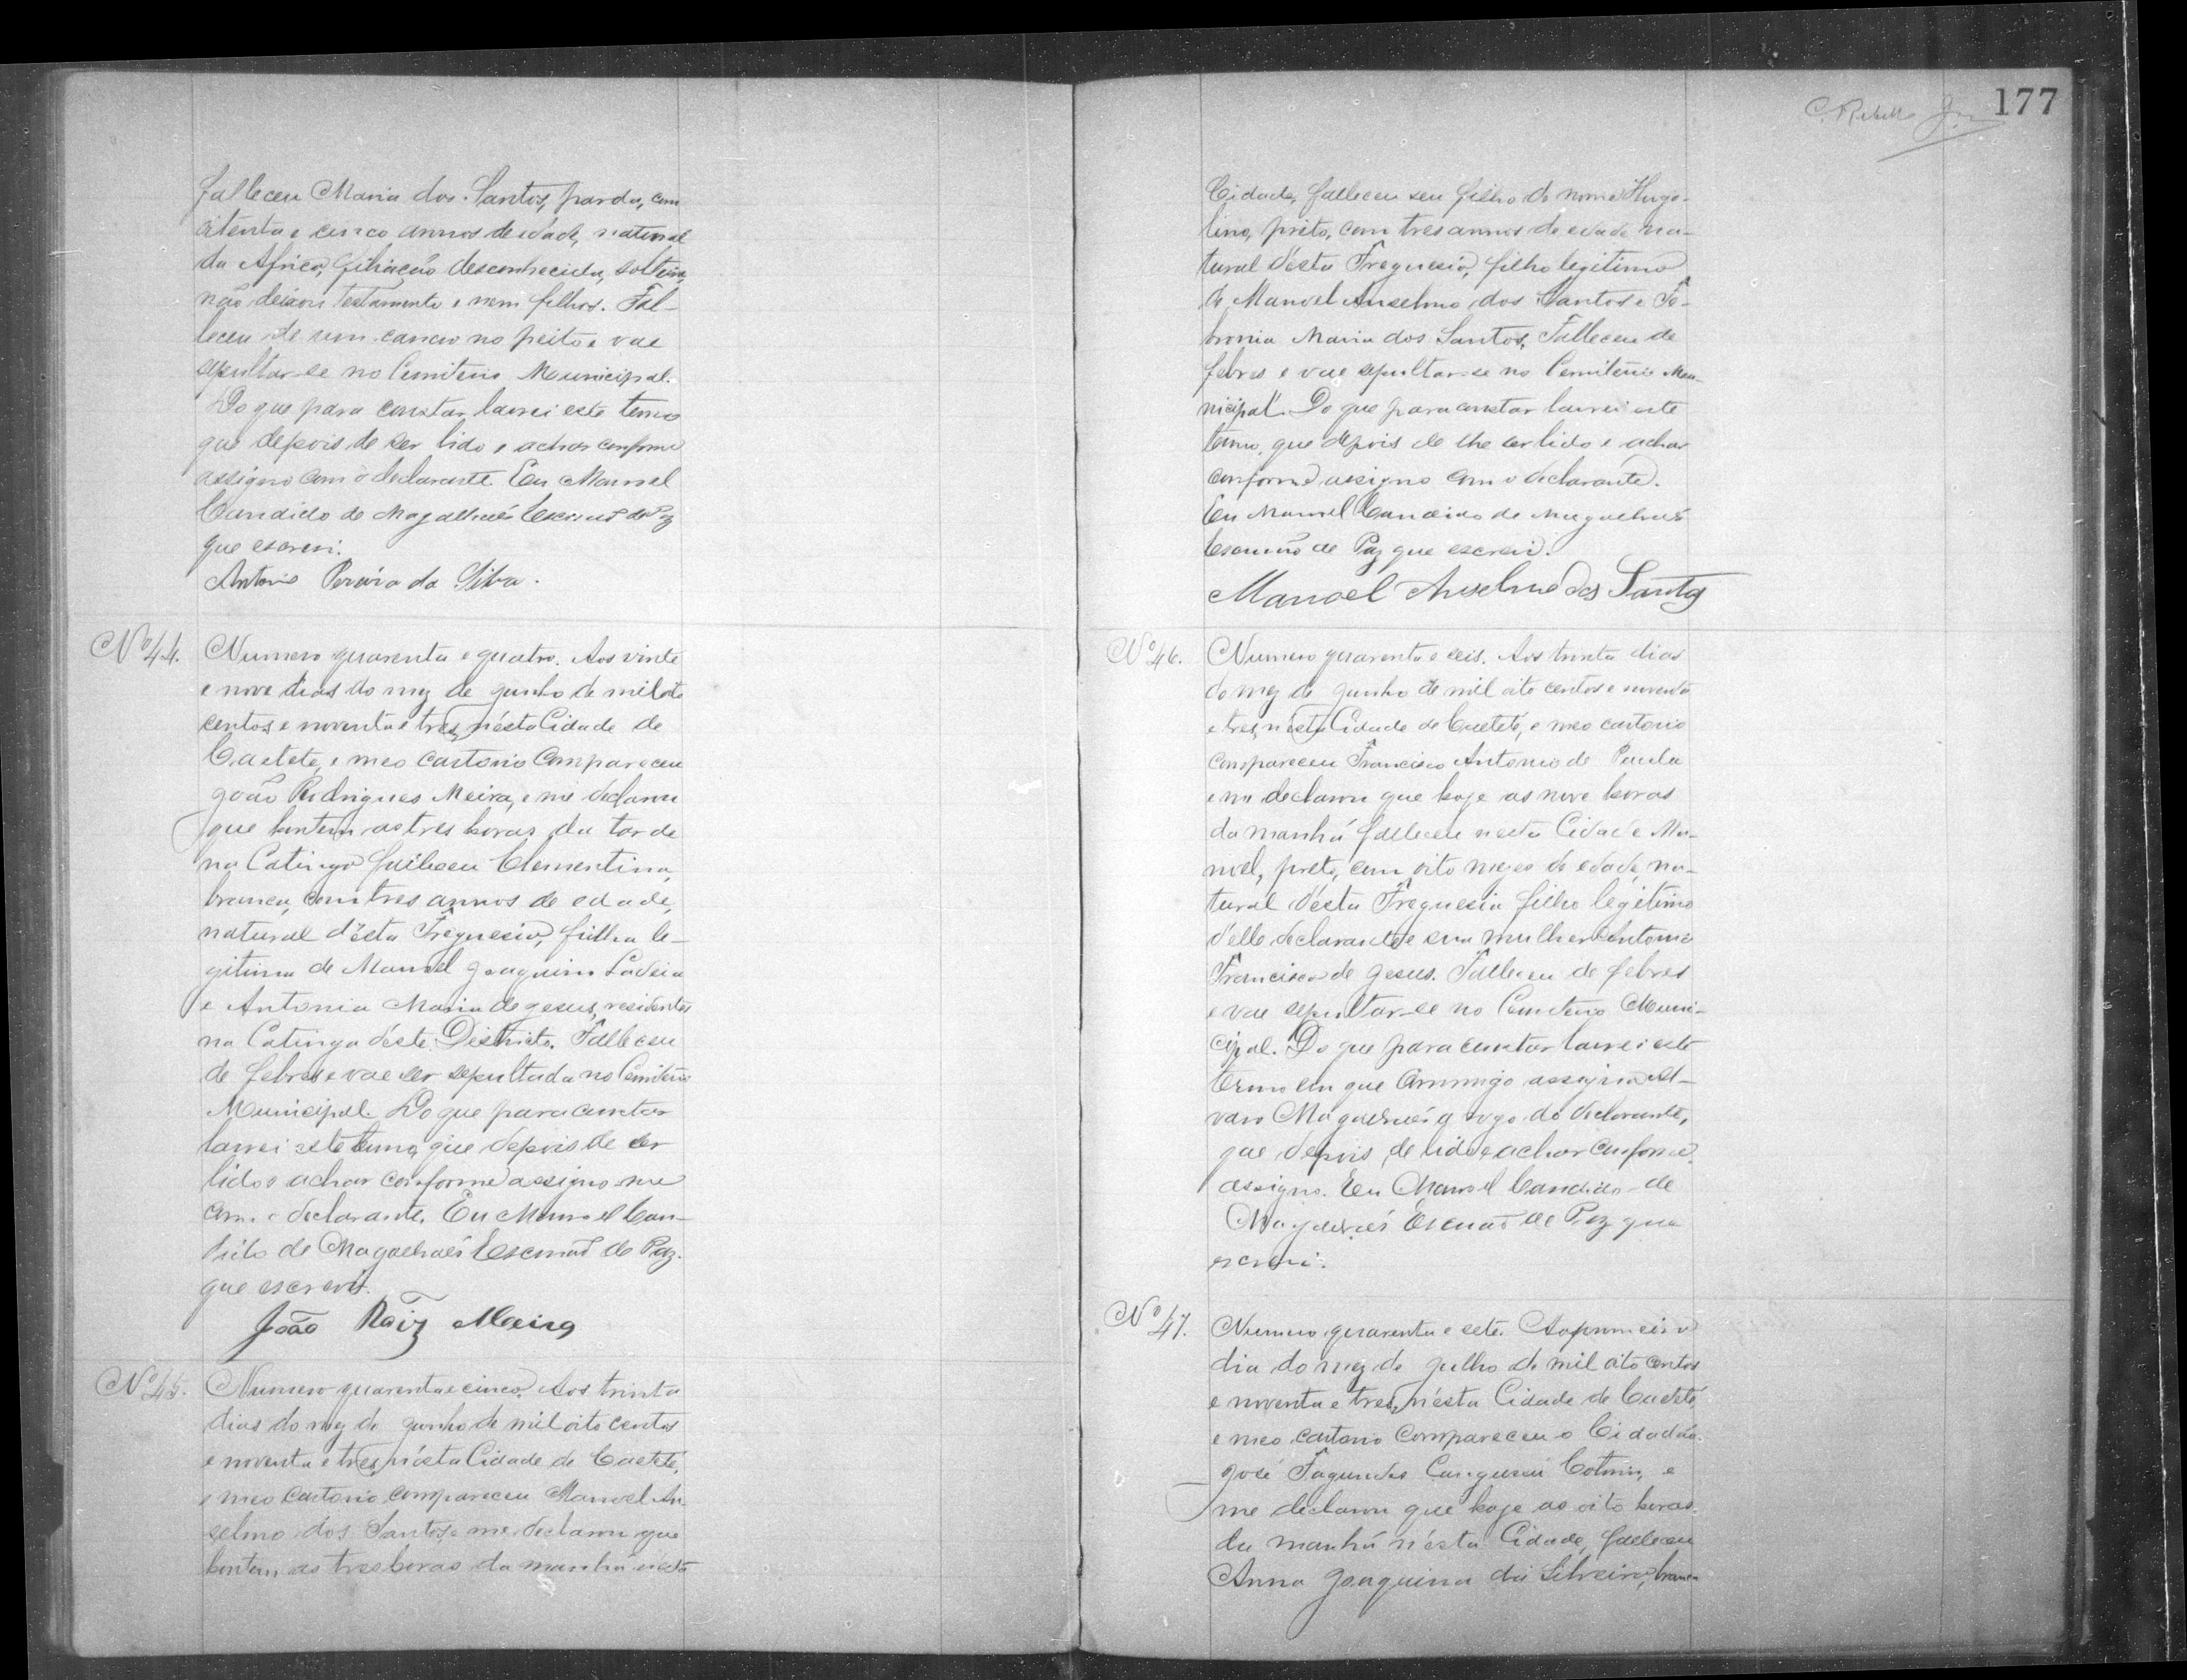 falleceu Maria dos Santos, parda, com
oitenta e cinco annos de idade, natural
da Africa, filiação desconhecida, solteira,
não deixou testamento e nem filhos. Fal-
leceu de um cancro no peito e vae
sepultar-se no Cemiterio Municipal.
Do que para constar lavrei este termo
que depois de ser lido e achar conforme
assigno com o declarante. Eu Manoel
Candido de Magalhães Escrivão de Paz
que escrevi.
Antonio Pereira da Silva.
Nº 44. Numero quarenta e quatro. Aos vinte
e nove dias do mez de Junho de mil oito
centos e noventa e tres, n'ésta Cidade de
Caeteté, e meo cartorio compareceu
João Rodrigues Meira, e me declarou
que hontem as tres horas da tarde
na Catinga falleceu Clementina,
branca, com tres annos de edade,
natural d'ésta Freguesia, filha le-
gitima de Manoel Joaquim Ladeia
e Antonia Maria de Jesus, residentes
na Catinga d'éste Districto. Falleceu
de febres e vae ser sepultada no Cemiterio
Municipal. Do que para constar
lavrei este termo, que depois de ser
lido e achar conforme assigno-me
com o declarante. Eu Manoel Can-
dido de Magalhães Escrivão de Paz.
que escrevi.
João Roiz Meira
Nº 45. Numero quarenta e cinco. Aos trinta
dias do mez de Junho de mil oito centos
e noventa e tres, n'ésta Cidade de Caeteté,
e meo cartorio compareceu Manoel An-
selmo dos Santos, e me declarou que
hontem, as tres horas da manhã nesta
177
C. Rebello Jor
Cidade, falleceu seu filho de nome Hugo-
lino, preto, com tres annos de edade na-
tural d'ésta Freguesia, filho legitimo
de Manoel Anselmo dos Santos e Fe-
bronia Maria dos Santos, Falleceu de
febres e vae sepultar-se no Cemiterio Mu-
nicipal. Do que para constar lavrei este
termo, que depois de lhe ser lido e achar
conforme assigno com o declarante.
Eu Manoel Candido de Magalhães
Escrivão de Paz que escrevi.
Manoel Anselmo dos Santos
Nº 46. Numero quarenta e seis. Aos trinta dias
do mez de Junho de mil oito centos e noventa
e tres, n'ésta Cidade de Caeteté, e meo cartorio
compareceu Francisco Antonio de Paula
e me declarou que hoje as nove horas
da manhã falleceu nesta Cidade Ma-
noel, preto, com oito mezes de edade, na-
tural d'ésta Freguesia filho legitimo
d'elle declarante e sua mulher Antonia
Francisca de Jesus. Falleceu de febres
e vae sepultar-se no Cemiterio Muni-
cipal. Do que para constar lavrei este
termo em que commigo assigna Al-
varo Magalhães a rogo do declarante,
que depois de lido e achar conforme
assigno. Eu Manoel Candido de
Magalhães Escrivão de Paz que
escrevi.
Nº 47. Numero quarenta e sete. Ao primeiro
dia do mez de Julho de mil oito centos
e noventa e tres, n'ésta Cidade de Caeteté,
e meo cartorio compareceu o Cidadão
José Fagundes Cangussú Cotrim, e
me declarou que hoje as oito horas
da manhã n'ésta Cidade, falleceu
Anna Joaquina da Silveira, branca